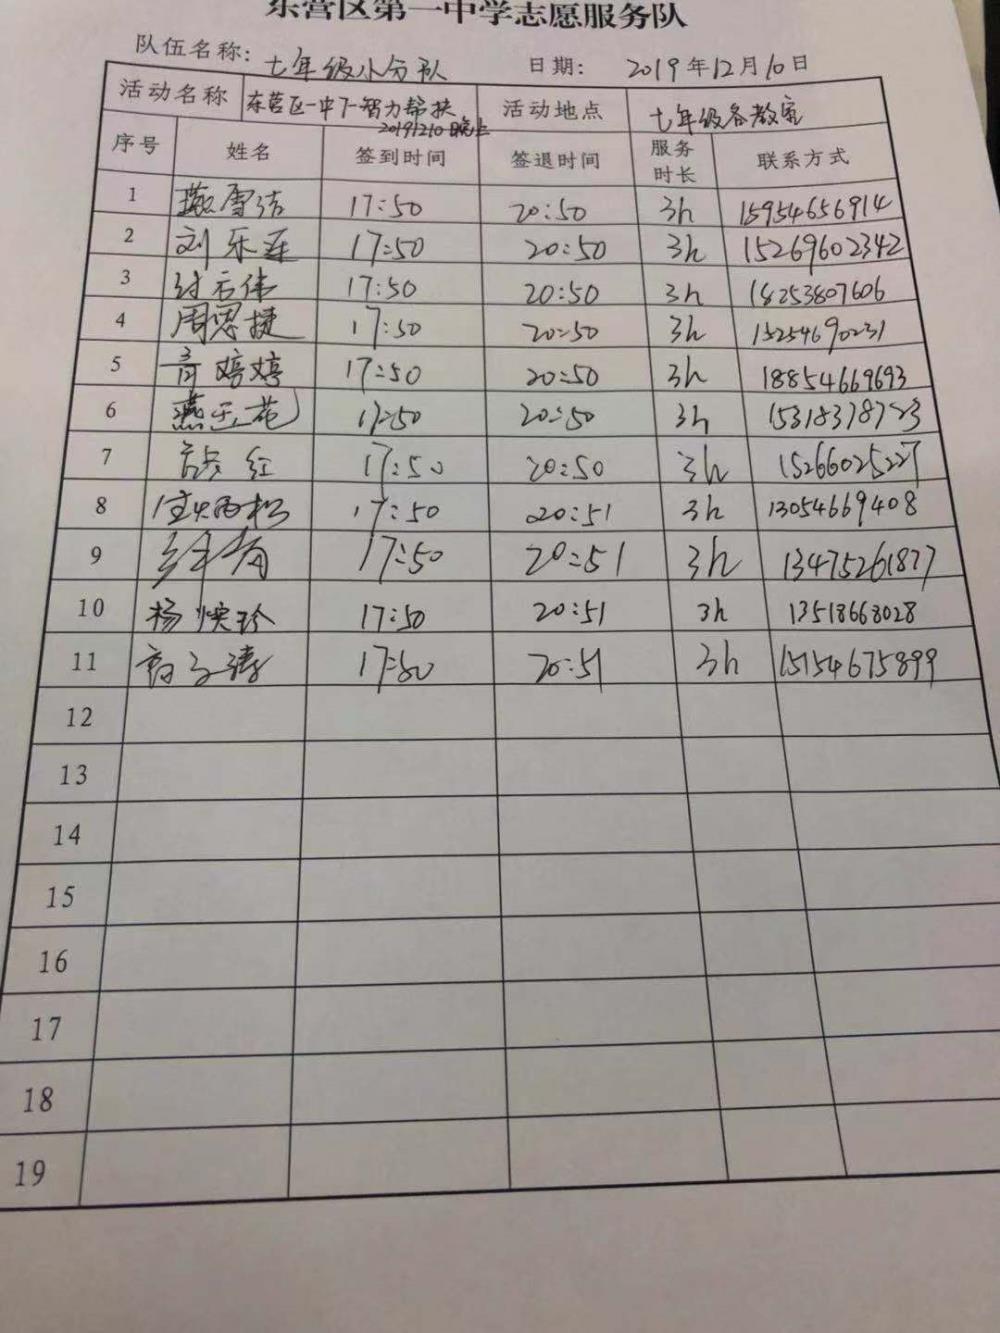 东营区第一中学志愿服务队
队伍名称: 七年级小分队 日期: 2019年12月10日
活动名称 东营区一中丨智力帮扶 20191210晚上 活动地点 七年级各教室
序号 姓名 签到时间 签退时间 服务时长 联系方式
1 撖雪洁 17:50 20:50 3h 15954656914
2 刘乐莲 17:50 20:50 3h 15269602342
3 17:50 20:50 3h 18253807606
4 周思捷 17:50 20:50 3h 15254690231
5 婷婷 17:50 20:50 3h 18854669693
6 燕玉花 17:50 20:50 3h
7 红 17:50 20:50 3h 15266025227
8 17:50 20:51 3h 13054669408
9 17:50 20:51 3h 13475261877
10 杨焕珍 17:50 20:51 3h 13518668028
11 17:50 20:51 3h 15154675899
12
13
14
15
16
17
18
19